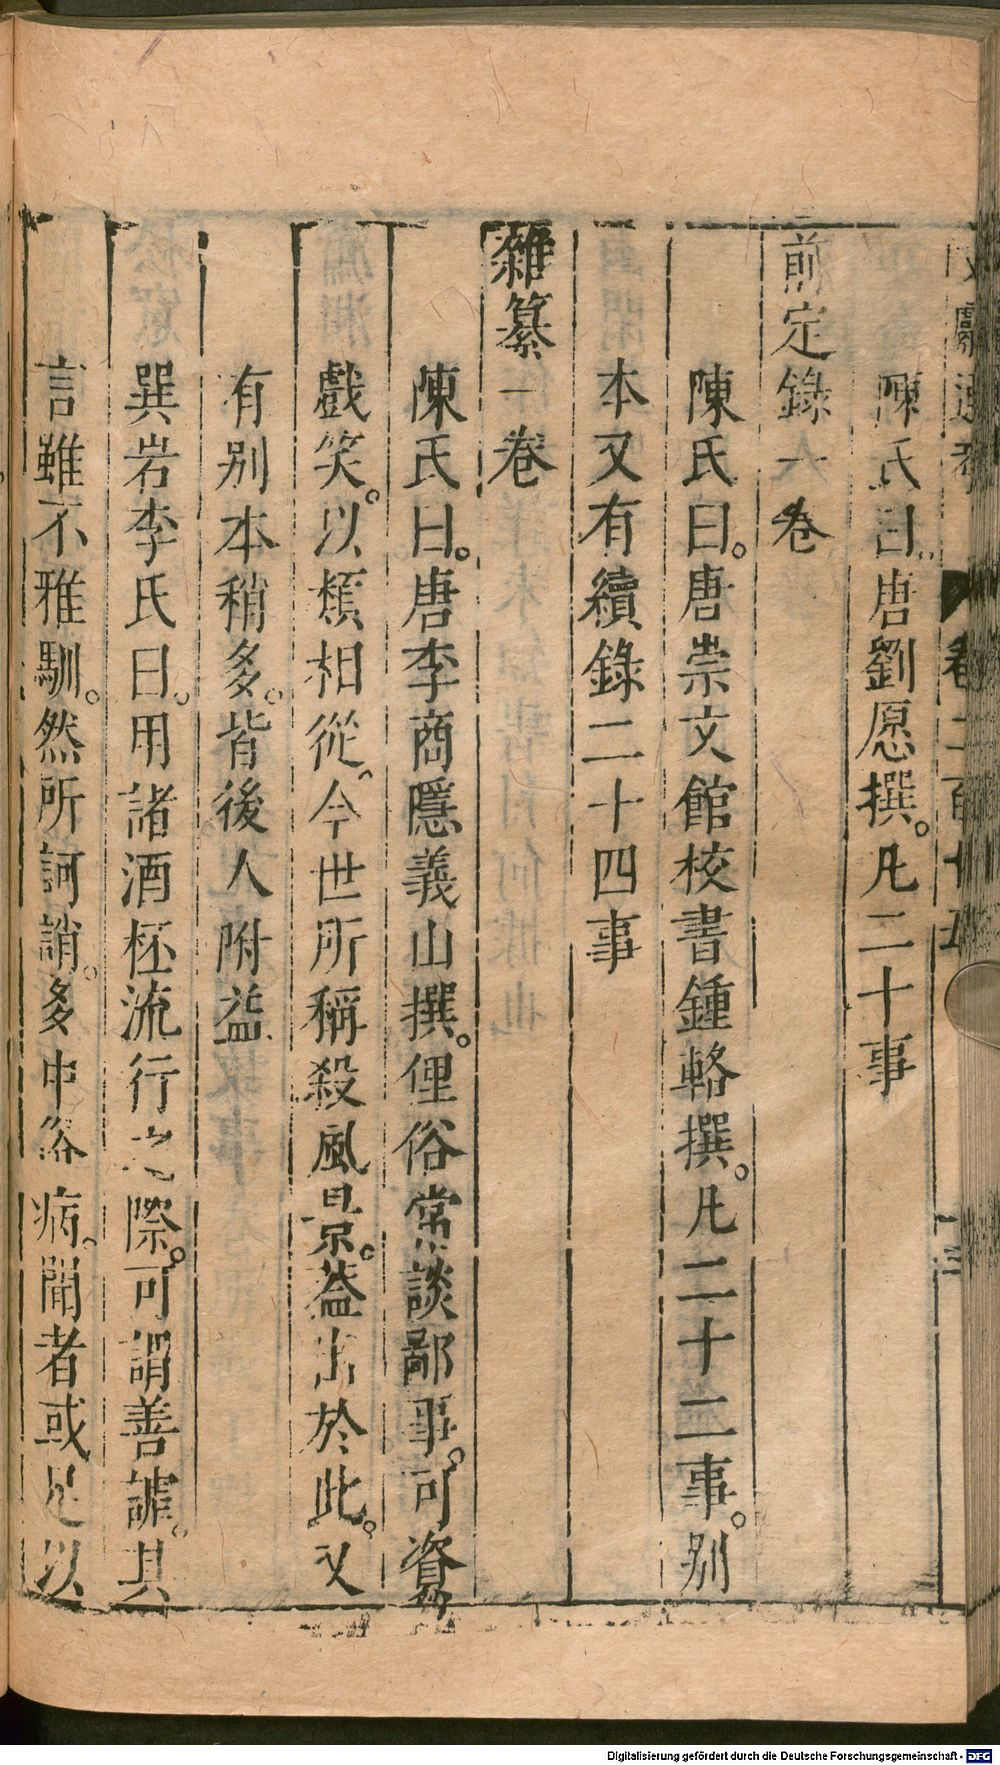 文獻通考 卷二百十五 十三
陳氏曰。唐劉愿撰。凡二十事
前定錄一卷
陳氏曰。唐崇文館校書鍾輅撰。凡二十二事。別
本又有續錄二十四事
雜纂一卷
陳氏曰。唐李商隱義山撰。俚俗常談鄙事。可資
戲笑。以類相從。今世所稱殺風景。葢出於此。又
有別本稍多。皆後人附益
巽岩李氏曰。用諸酒杯流行之際。可謂善謔。其
言雖不雅馴。然所訶誚。多中俗病。聞者或足以
Digitalisierung gefördert durch die Deutsche Forschungsgemeinschaft - DFG